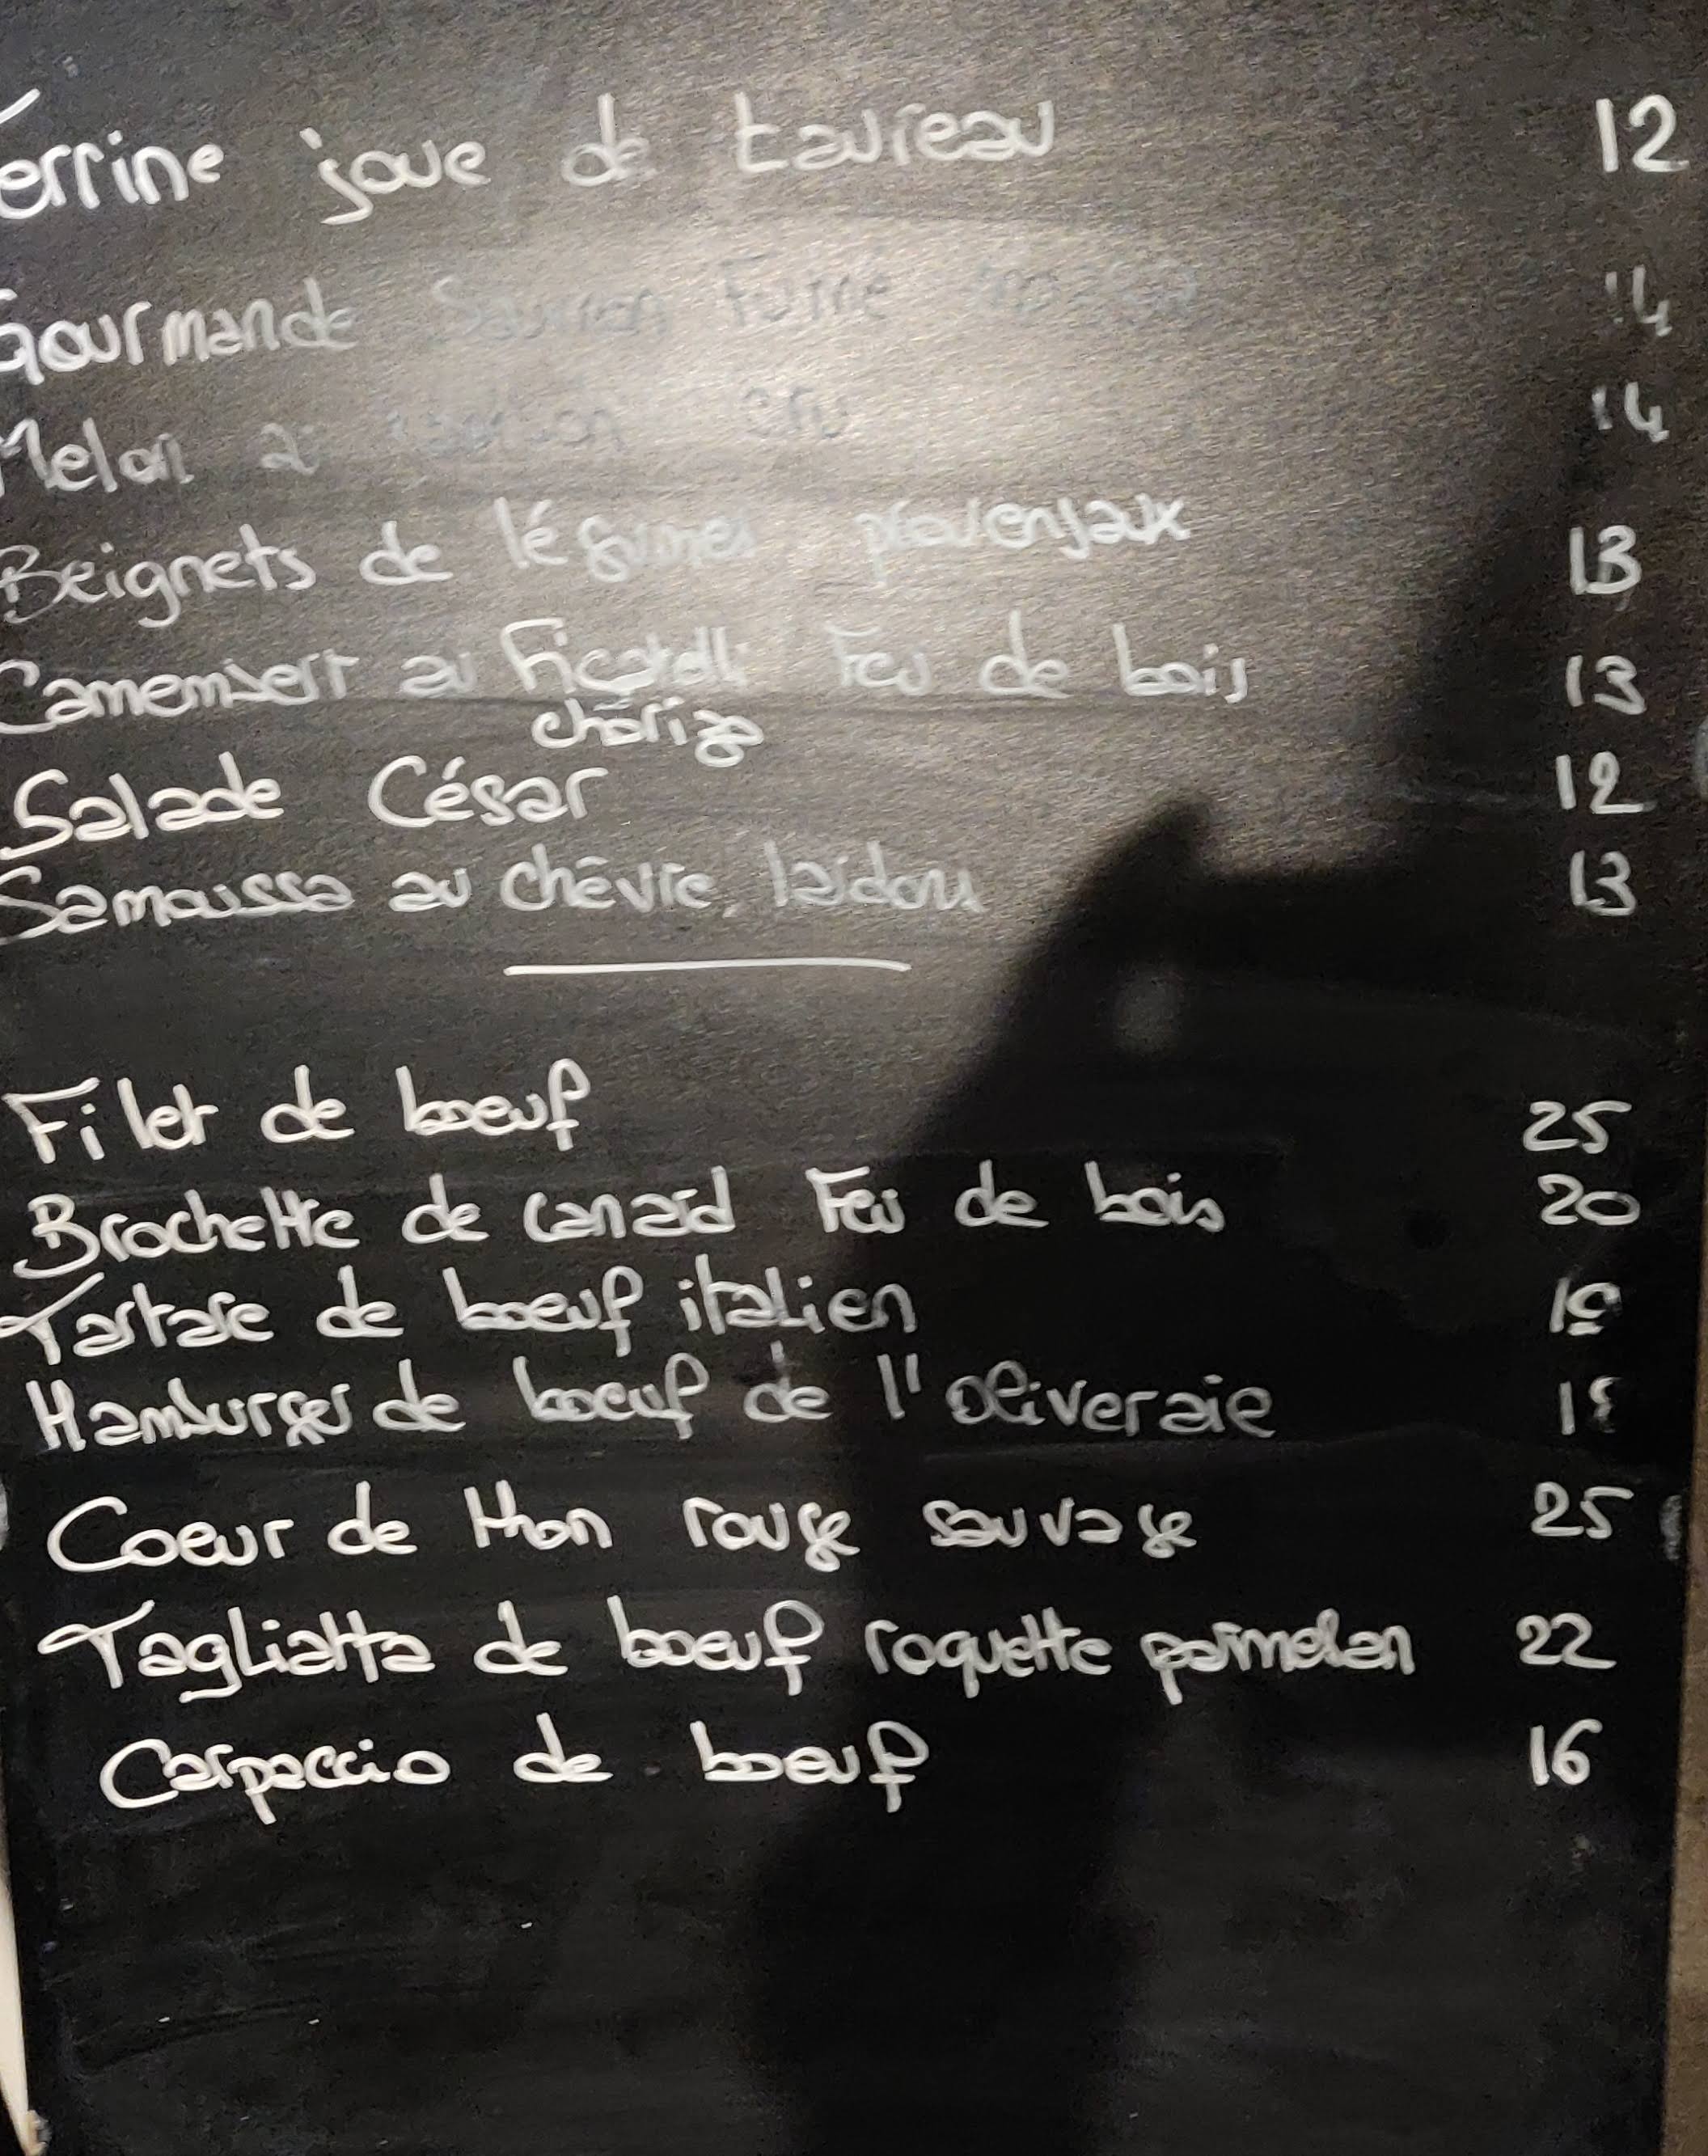 Terrine joue de taureau 12
Gourmande Saumon Fumé 14
Melon au cru 14
Beignets de légumes provensaux 13
Camembert au Ficatelli Feu de bois 13
chorizo
Salade César 12
Samoussa au chèvre, lardon 13
Filet de boeuf 25
Brochette de canard Feu de bois 20
Tartare de boeuf italien
Hamburger de boeuf de l'oliveraie
Coeur de thon rouge sauvage 25
Tagliatta de boeuf roquette parmesan 22
Carpaccio de boeuf 16